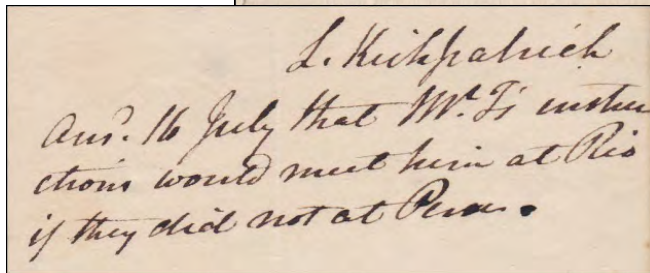 L. Kirkpatrick
Ans.d 16 July that Mr. T's instru
ctions would meet him at Rio
if they did not at